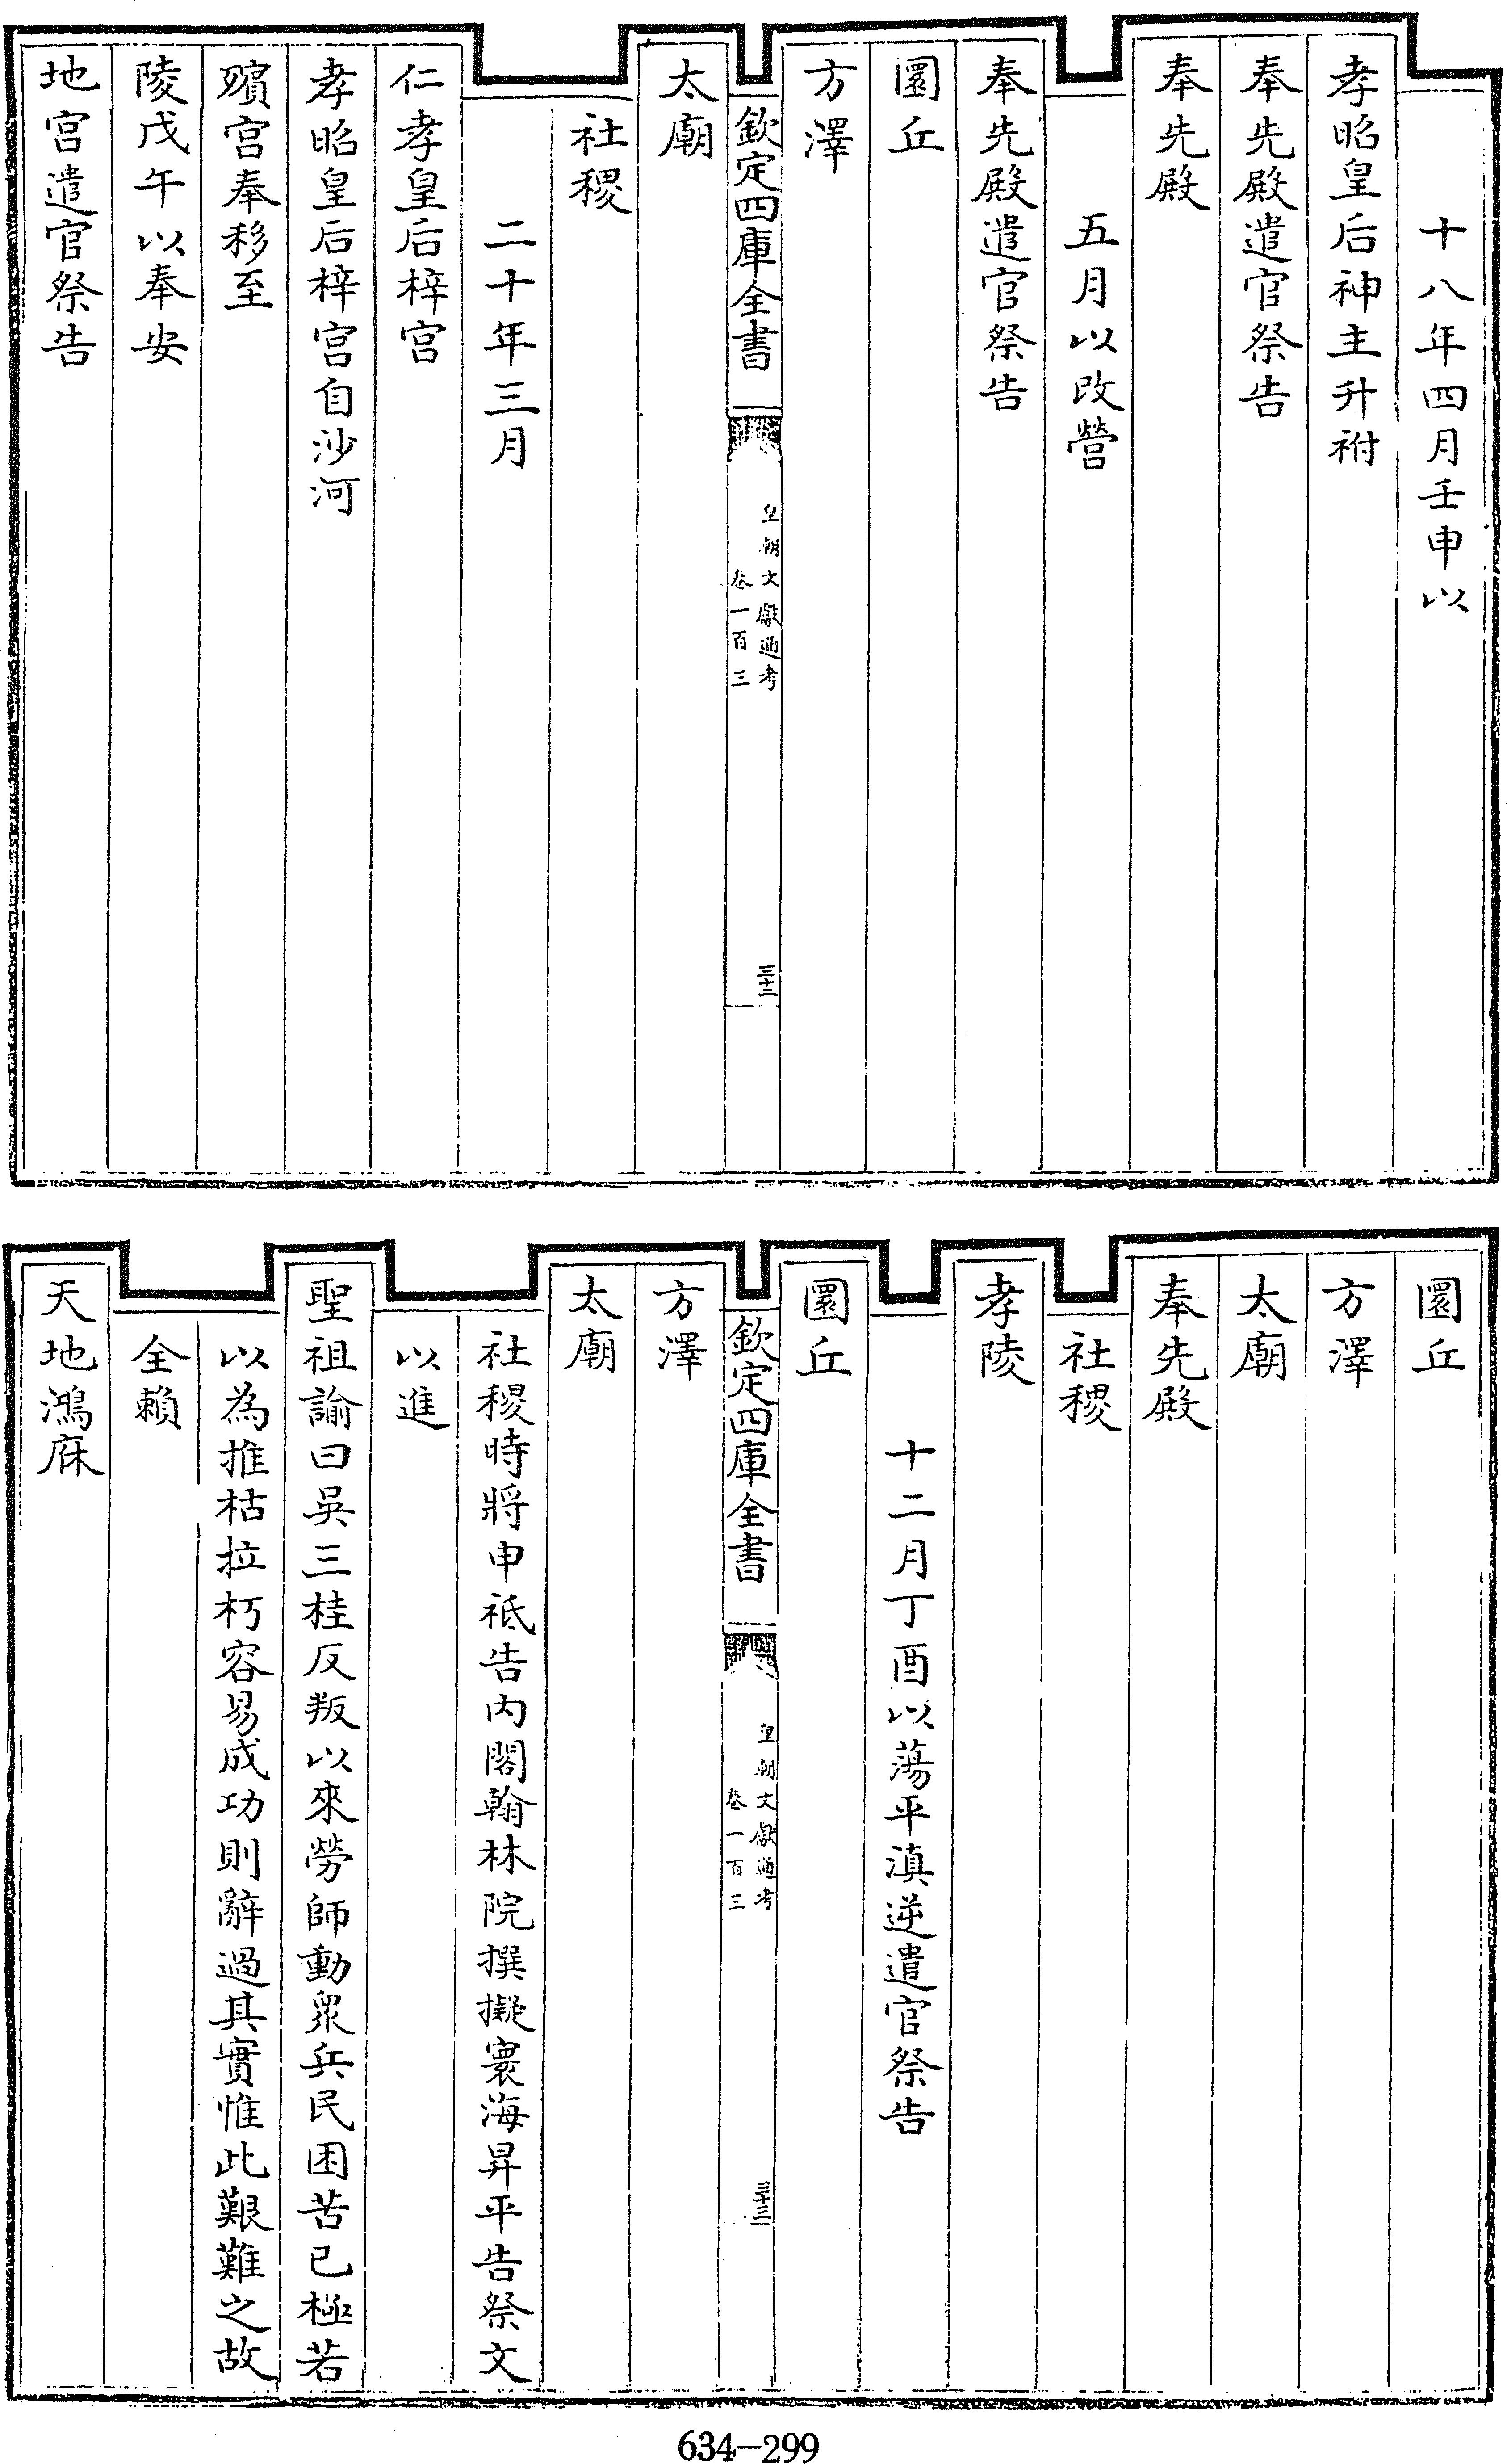 十八年四月壬申以
孝昭皇后神主升祔
奉先殿遣官祭告
奉先殿
五月以改營
奉先殿遣官祭告
圜丘
方澤
欽定四庫全書
皇朝文獻通考
卷一百三
三十二
太廟
社稷
二十年三月
仁孝皇后梓宮
孝昭皇后梓宮自沙河
殯宮奉移至
陵戊午以奉安
地宮遣官祭告
圜丘
方澤
太廟
奉先殿
社稷
孝陵
十二月丁酉以蕩平滇逆遣官祭告
圜丘
欽定四庫全書
皇朝文獻通考
卷一百三
三十三
方澤
太廟
社稷時將申祗告内閣翰林院撰擬寰海昇平告祭文
以進
聖祖諭曰吳三桂反叛以來勞師動衆兵民困苦已極若
以為推枯拉朽容易成功則辭過其實惟此艱難之故
全賴
天地鴻庥
634-299